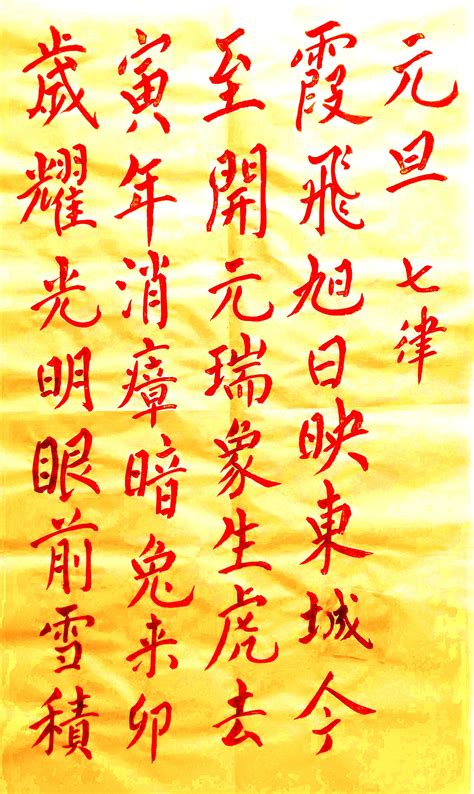 元旦 七律
霞飛旭日映東城今
至開元瑞象生虎去
寅年消瘴暗兔来卯
歲耀光明眼前雪積